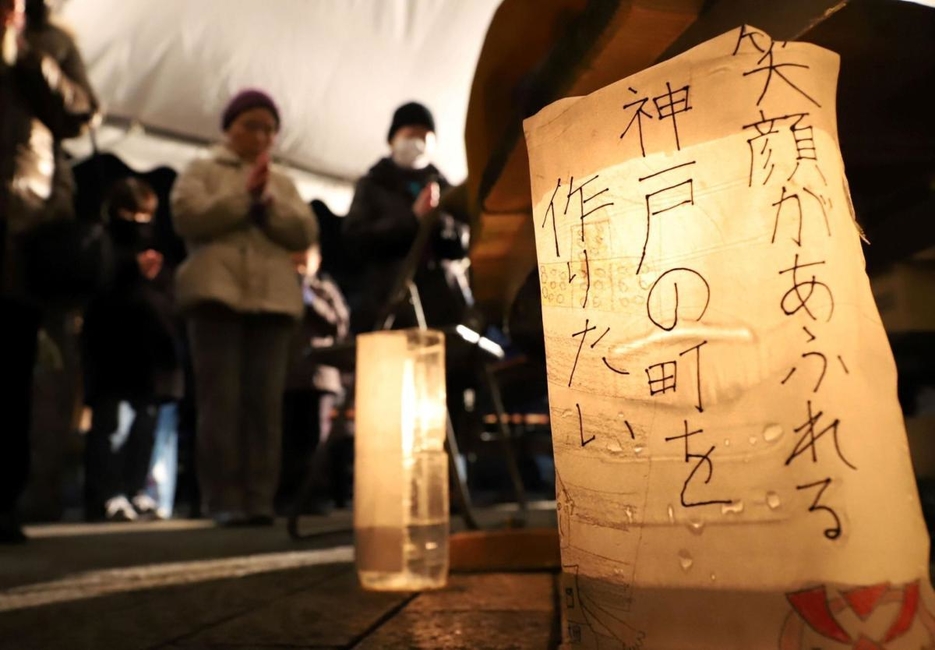 笑顔があふれる
神戸の町を
作りたい